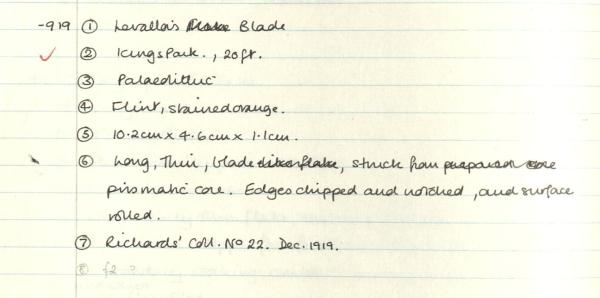 -919 ① Levallois Blade
② Kings Park., 20ft.
③ Palaeolithic
④ Flint, stained orange.
⑤ 10.2cm x 4.6cm x 1.1cm.
⑥ Long, Thin, blade, struck from
prismatic core. Edges chipped and notched, and surface
rolled.
⑦ Richards' Coll. No 22. Dec. 1919.
⑧ f2 ?